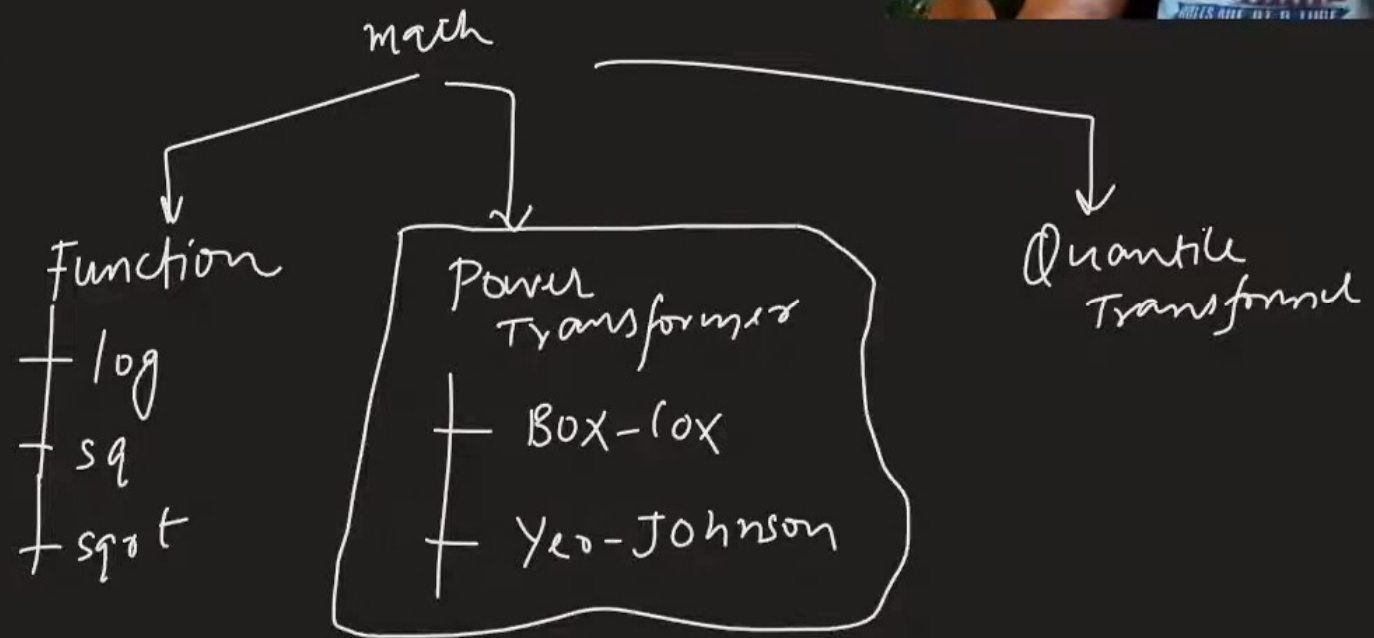 math
Function
log
sq
sqrt
Power
Transformer
Box-Cox
Yeo-Johnson
Quantile
Transformer